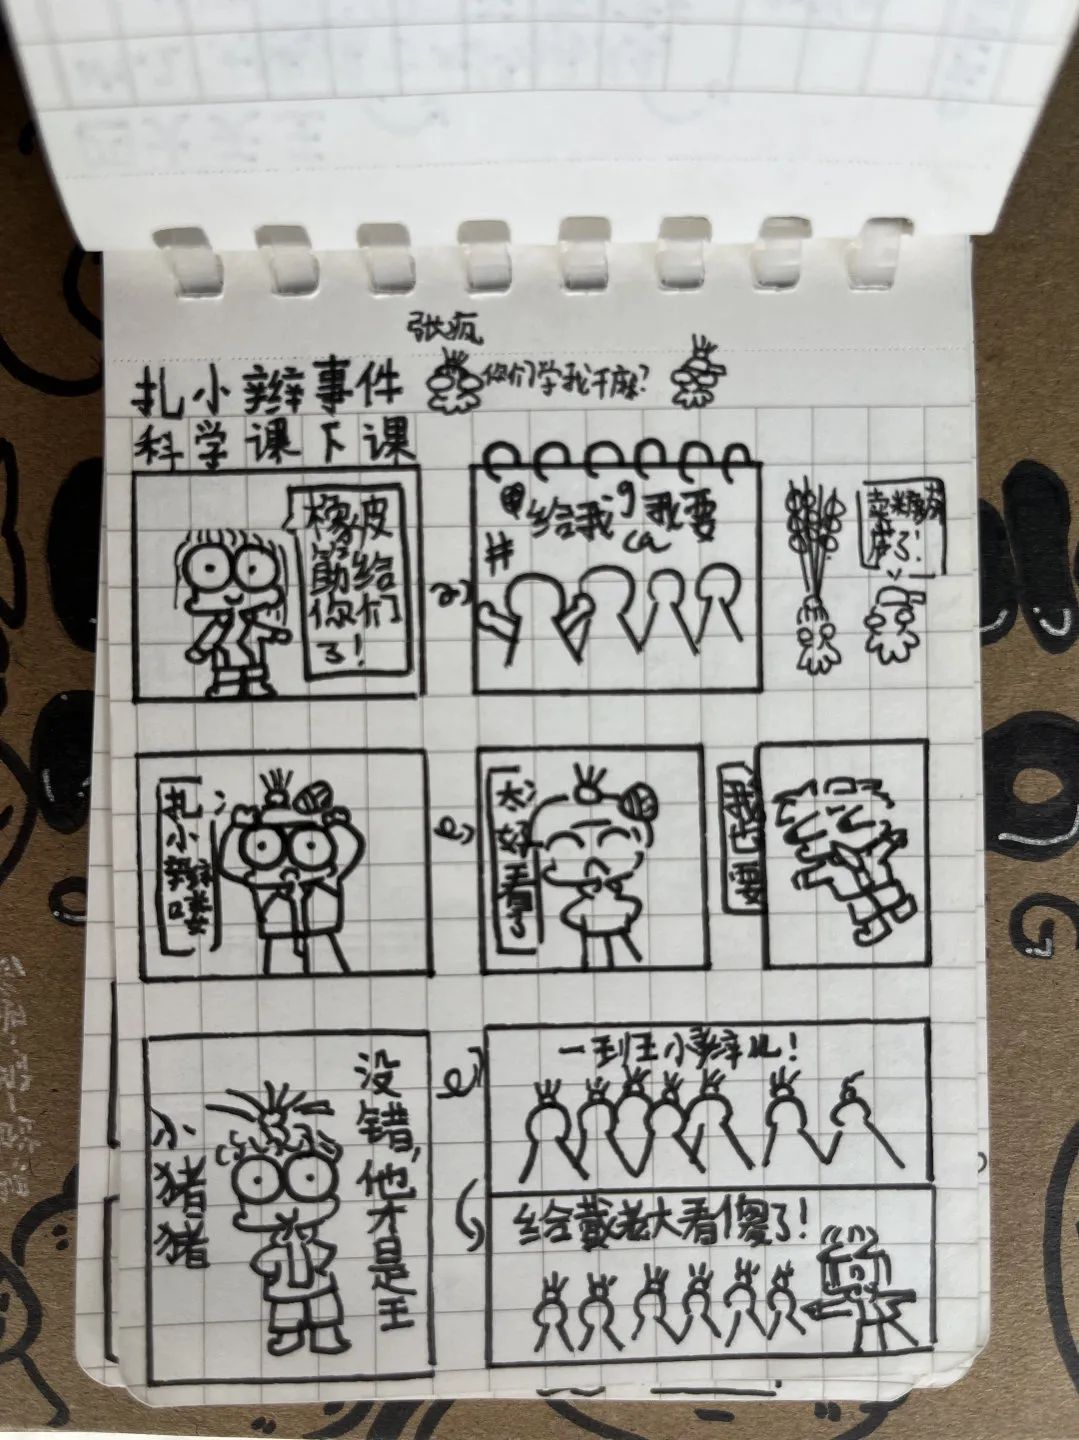 张疯
扎小辫事件
你们学我干麻？
科学课下课
橡皮
筋给
你们
了！
给我 我要
卖糖葫
芦了！
扎小辫喽
太好看了
我也要
小猪猪
没错，他才是王
一班小辫儿！
给戴老大看傻了！